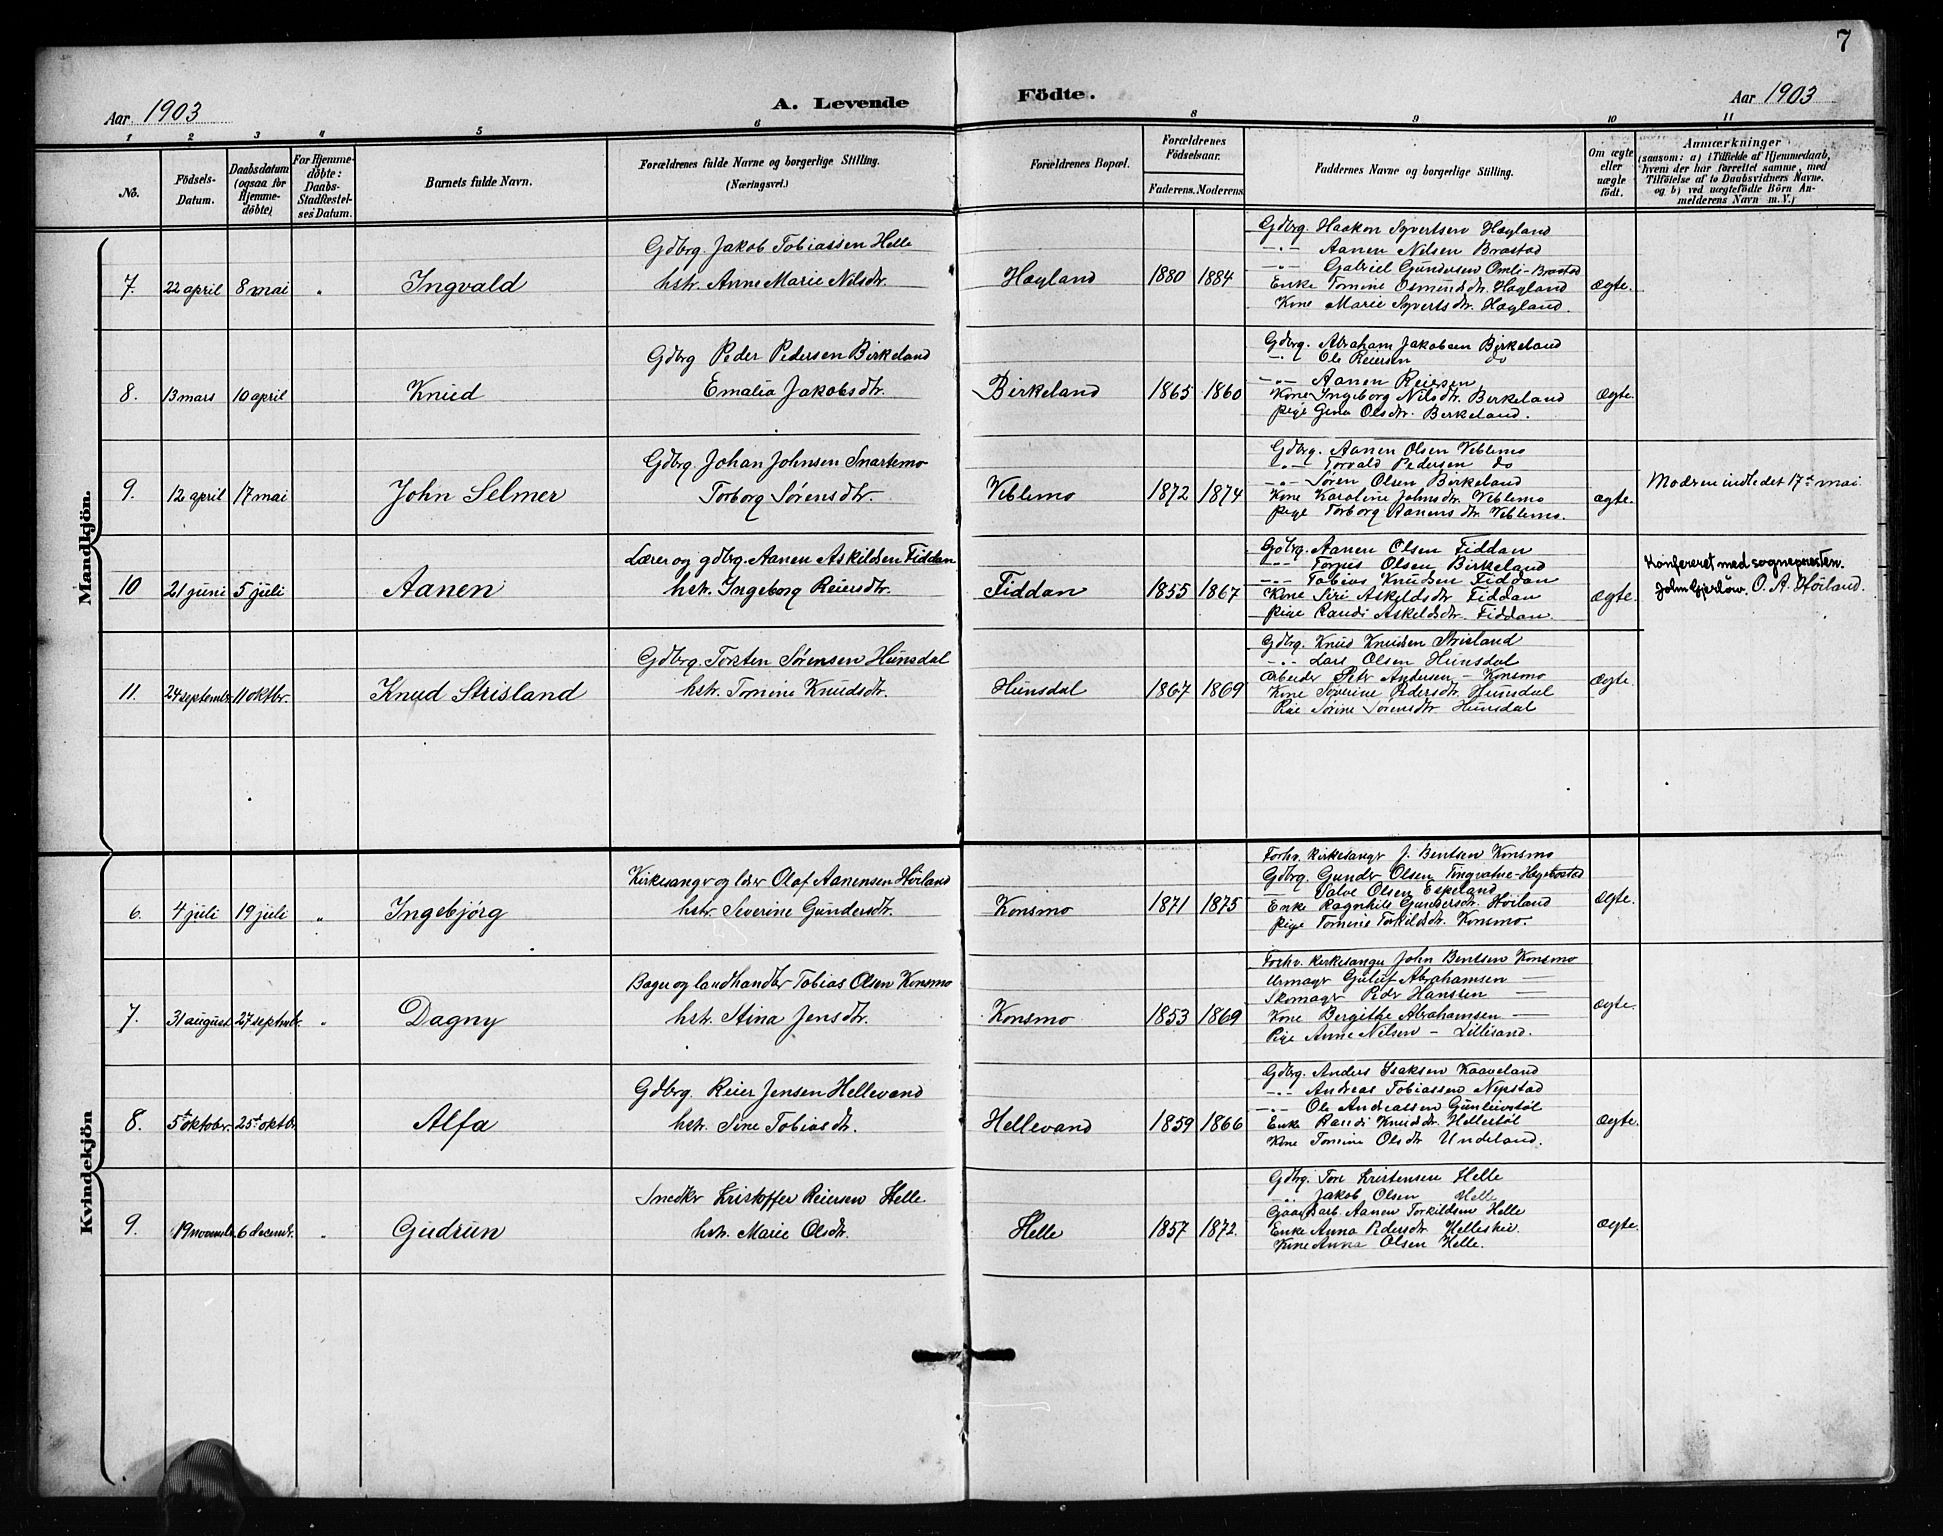 7
Aar 1903
A. Levende Födte.
Aar 1903
1 2 3 4 5 6 8 9 10 11
No.
Födsels-Datum.
Daabsdatum (ogsaa for Hjemmedöbte)
For Hjemmedöbte: Daabs-Stadfestelses Datum.
Barnets fulde Navn.
Forældrenes fulde Navne og borgerlige Stilling. (Næringsvei.)
Forældrenes Bopæl.
Forældrenes Födselsaar.
Faderens. Moderens.
Faddernes Navne og borgerlige Stilling.
Om ægte eller uægte födt.
Anmærkninger
(saasom: a) i Tilfælde af Hjemmedaab,
hvem der har forrettet samme, med
Tilföielse af to Daabsvidners Navne.
og b) ved uægtefödte Börn An-
melderens Navn m.V.)
Mandkjön.
7. 22 april 8 mai " Ingvald
Gdbrg. Jakob Tobiassen Helle
hstr. Anne Marie Nilsdtr.
Høyland 1880 1884
Gdbrg. Haakon Syvertsen Høyland
-"- Aanen Nilsen Brøstad
-"- Gabriel Gundersen Omli-Brøstad
Enke Tomine Osmundsdtr. Høyland
Kone Marie Syvertsdtr. Høyland.
Ægte.
8. 13 mars 10 april Knud
Gdbrg Peder Pedersen Birkeland
Emalia Jakobsdtr.
Birkeland 1865 1860
Gdbrg. Abraham Jakobsen Birkeland
-"- Ole Reiersen do
-"- Aanen Reiersen
Kone Ingeborg Nilsdtr. Birkeland
pige Gina Olsdtr. Birkeland.
Ægte.
9. 12 april 17 mai John Selmer
Gdbrg. Johan Johnsen Snartemo
Torborg Sørensdtr.
Veblemo 1872 1874
Gdbrg. Aanen Olsen Veblemo
-"- Torvald Pedersen do
-"- Søren Olsen Birkeland
Kone Karoline Johnsdtr. Veblemo
pige Torborg Aanensdtr. Veblemo.
Ægte.
Moderen indledet 17de mai.
10 21 juni 5 juli Aanen
Lærer og gdbrg. Aanen Askildsen Fiddan
hstr. Ingeborg Reiersdtr.
Fiddan 1855 1867
Gdbrg. Aanen Olsen Fiddan
-"- Torjus Olsen Birkeland
-"- Tobias Knudsen Fiddan
Kone Siri Askildsdtr. Fiddan
pige Randi Askildsdtr. Fiddan.
Ægte.
Konfereret med sognepresten.
John Gjerløw. O. A. Höiland.
11. 24 septembr. 11 oktbr. Knud Strisland
Gdbrg. Torsten Sørensen Hunsdal
hstr. Tomine Knudsdtr.
Hunsdal 1867 1869
Gdbrg. Knud Knudsen Strisland
-"- Lars Olsen Hunsdal
Arbeider Petr Andersen - Konsmo
Kone Severine Pedersdtr. Hunsdal
Pige Sørine Sørensdtr. Hunsdal
Ægte.
Kvindekjön
6. 4 juli 19 juli " Ingebjørg
Kirkesangr og lærer Olaf Aanensen Höiland
hstr. Severine Gundersdtr.
Konsmo 1871 1875
Forhv. kirkesangr J. Bentsen Konsmo
Gdbrg. Gunder Olsen Tingvatne-Hægebostad
Salve Olsen Espeland
Enke Ragnhild Gundersdtr. Höiland
pige Tomine Torkildsdtr. Konsmo.
Ægte.
7. 31 august 27 septmbr. " Dagny
Bager og landhandler Tobias Olsen Konsmo
hstr. Stina Jensdtr.
Konsmo 1853 1869
Forhv. kirkesanger John Bentsen Konsmo
Urmagr Abrahamsen —
Skomagr Pedr Hansen —
Kone Bergithe Abrahamsen —
Pige Anne Nelsen - Lillisand.
Ægte.
8. 5te oktobr. 25de oktbr. Alfa
Gdbrg Reier Jensen Hellevand
hstr. Sine Tobiasdtr.
Hellevand 1859 1866
Gdbrg. Anders Isaksen Kaaveland
-"- Andreas Tobiassen Nepstad
-"- Ole Andreassen Gunleivstøl
Enke Randi Knudsdtr. Hellestøl
Kone Tomine Olsdtr Undeland.
Ægte.
9. 19 novembr. 6 decembr. " Gudrun
Snedkr Kristoffer Reiersen Helle
hstr. Marie Olsdtr.
Helle 1857 1872.
Gdbrg. Tore Kristensen Helle
-"- Jakob Olsen Helle
Gaardarb. Aanen Torkildsen Helle
Enke Anna Pedersdtr. Helleshei.
Kone Anna Olsen Helle.
Ægte.